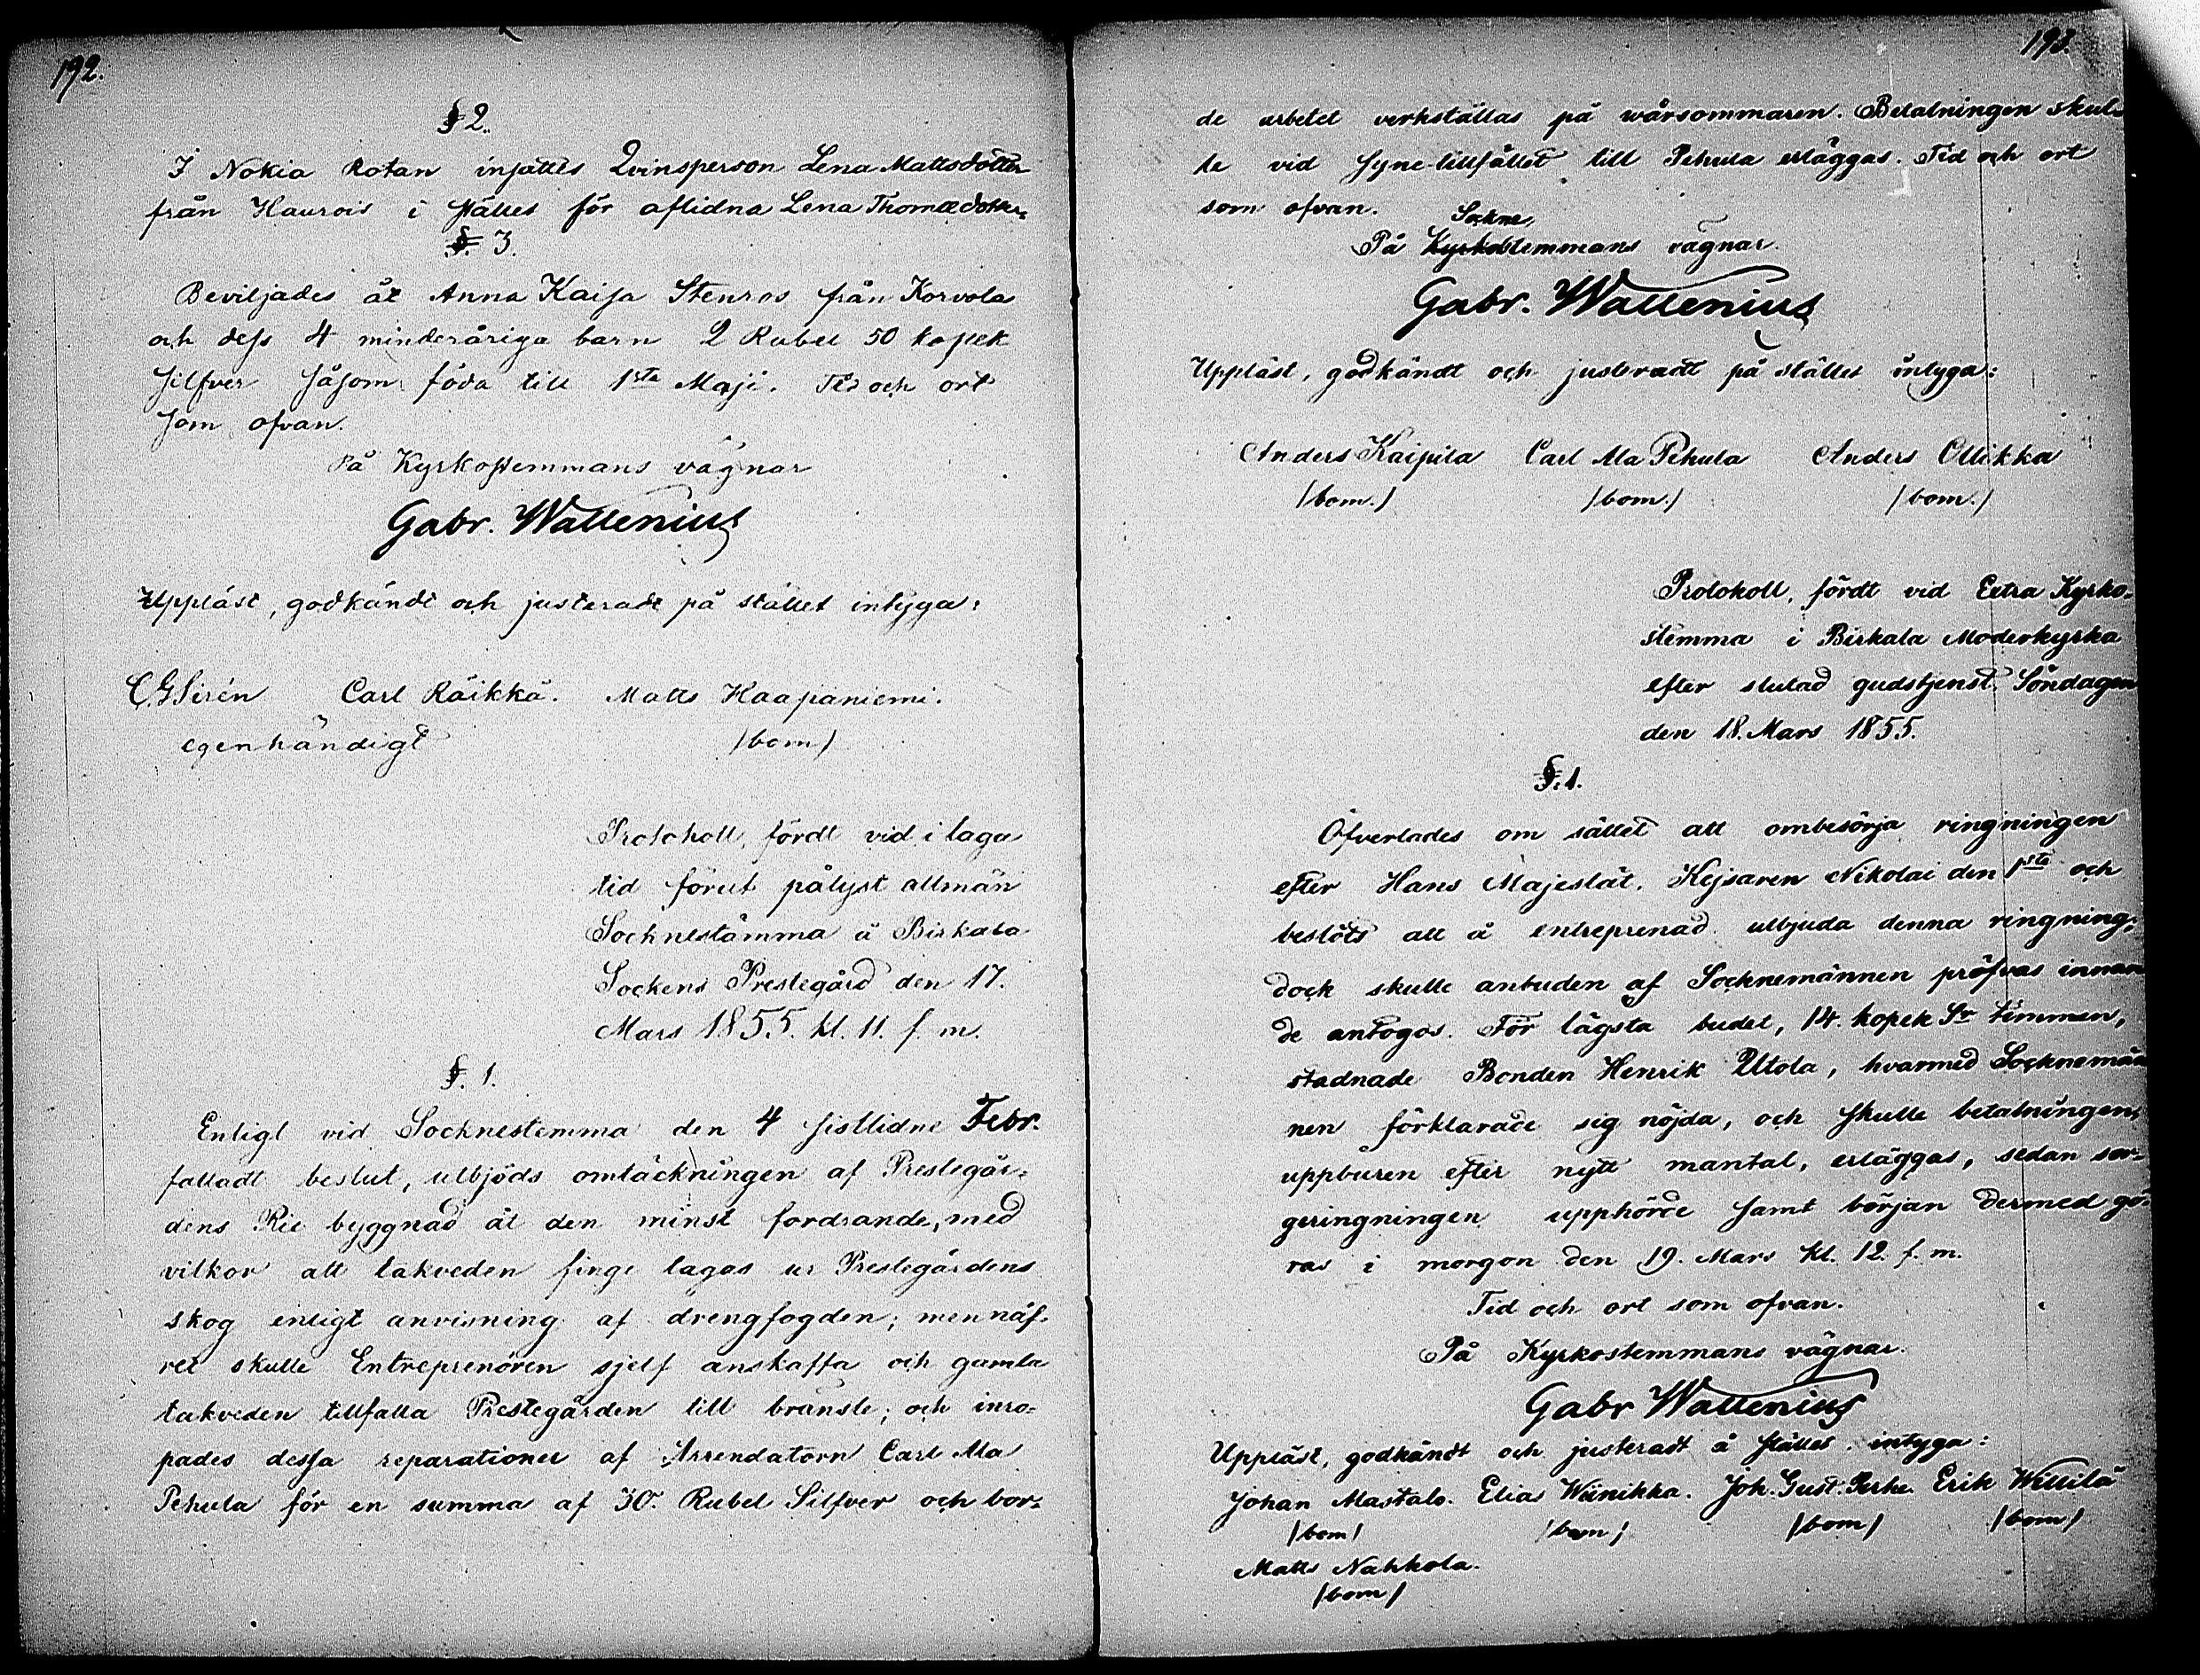 192.
§ 2.
I Nokia Rotan insattes Qvinsperson Lena Mattsdotter
från Haurois i stället för aflidna Lena Thomædotter.
§. 3.
Beviljades åt Anna Kaisa Stenros från Korvola
och dess 4 minderåriga barn 2 Rubel 50 kopek
silfver såsom föda till 1sta Maji. Tid och ort
som ofvan.
På Kyrkostemmans vägnar
Gabr. Wallenius
Uppläst, godkändt och justeradt på stället intyga:
C.G Sirén Carl Räikkä. Matts Haapaniemi.
egenhändigt /bom/
Protokoll, fördt vid i laga
tid förut pålyst allmän
Sochnestämma å Birkala
Sockens Prestegård den 17.
Mars 1855. kl. 11. f. m.
§. 1.
Enligt vid Socknestemma den 4 sistlidne Febr.
falladt beslut, utbjöds omtäckningen af Prestegår-
dens Rie byggnad åt den minst fordrande, med
vilkor att takveden finge tagas ur Prestegårdens
skog enligt anvisning af drengfogden; men näf-
ret skulle Entreprenören sjelf anskaffa och gamla
takveden tillfalla Prestegården till bränsle; och inro-
pades dessa reparationer af Arrendatorn Carl Ala
Pehula för en summa af 30. Rubel Silfver och bor-
193.
de arbetet verkställas på vårsommaren. Betalningen skul-
le vid syne-tillfället till Pehula erläggas. Tid och ort
som ofvan.
Sockne
På Kyrkostemmans vägnar
Gabr. Wallenius
Uppläst, godkändt och justeradt på stället intyga:
Anders Kaipila Carl Ala Pehula Anders Ollikka
/bom./ /bom./ /bom./
Protokoll, fördt vid Extra Kyrko-
stemma i Birkala Moderkyrka
efter slutad gudstjenst, Söndagen
den 18. Mars 1855.
§. 1.
Öfverlades om sättet att ombesörja ringningen
efter Hans Majestät, Kejsaren Nikolai den 1sta och
beslöts att å entreprenad utbjuda denna ringning,
dock skulle anbuden af Socknemännen pröfvas innan
de antogos. För lägsta budet, 14. kopek Sr timmen,
stadnade Bonden Henrik Utola, hvarmed Socknemän
nen förklarade sig nöjda, och skulle betalningen,
uppburen efter nytt mantal, erläggas, sedan sor-
geringningen upphörde samt början dermed gö-
ras i morgon den 19. Mars kl. 12. f. m.
Tid och ort som ofvan.
På Kyrkostemmans vägnar.
Gabr Wallenius
Uppläst, godkändt och justeradt å stället, intyga:
Johan Mastalo. Elias Wiinikka. Joh. Gust. Perhe. Erik Willilä
/bom/ /bom/ /bom/ /bom/
Matts Nahkola.
/bom/